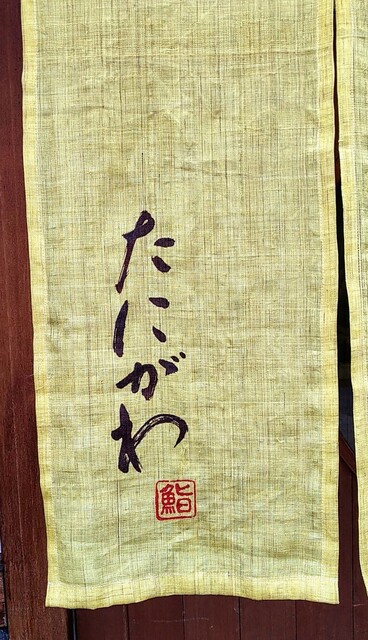 たにがわ
鮨